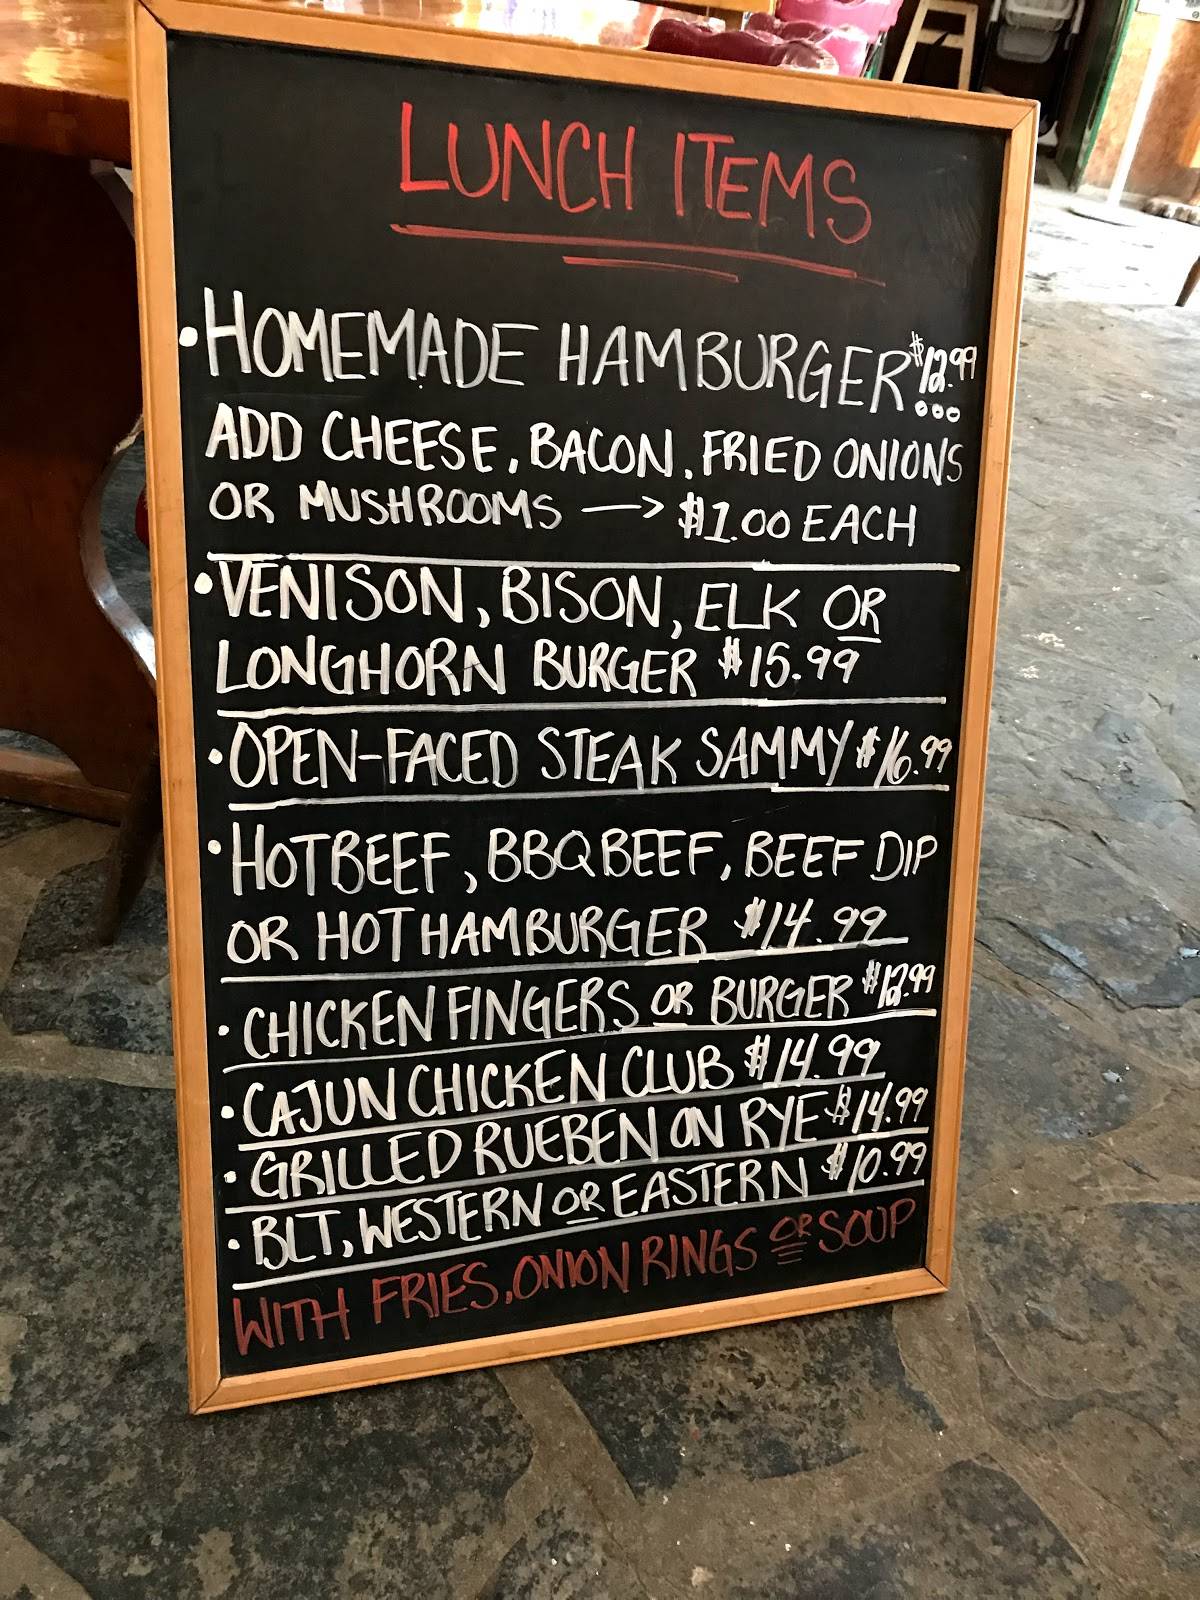 LUNCH ITEMS
• HOMEMADE HAMBURGER $12.99
ADD CHEESE, BACON, FRIED ONIONS
OR MUSHROOMS → $1.00 EACH
• VENISON, BISON, ELK OR
LONGHORN BURGER $15.99
• OPEN-FACED STEAK SAMMY $16.99
• HOT BEEF, BBQ BEEF, BEEF DIP
OR HOT HAMBURGER $14.99
• CHICKEN FINGERS OR BURGER $12.99
• CAJUN CHICKEN CLUB $14.99
• GRILLED RUEBEN ON RYE $14.99
• BLT, WESTERN OR EASTERN $10.99
WITH FRIES, ONION RINGS OR SOUP